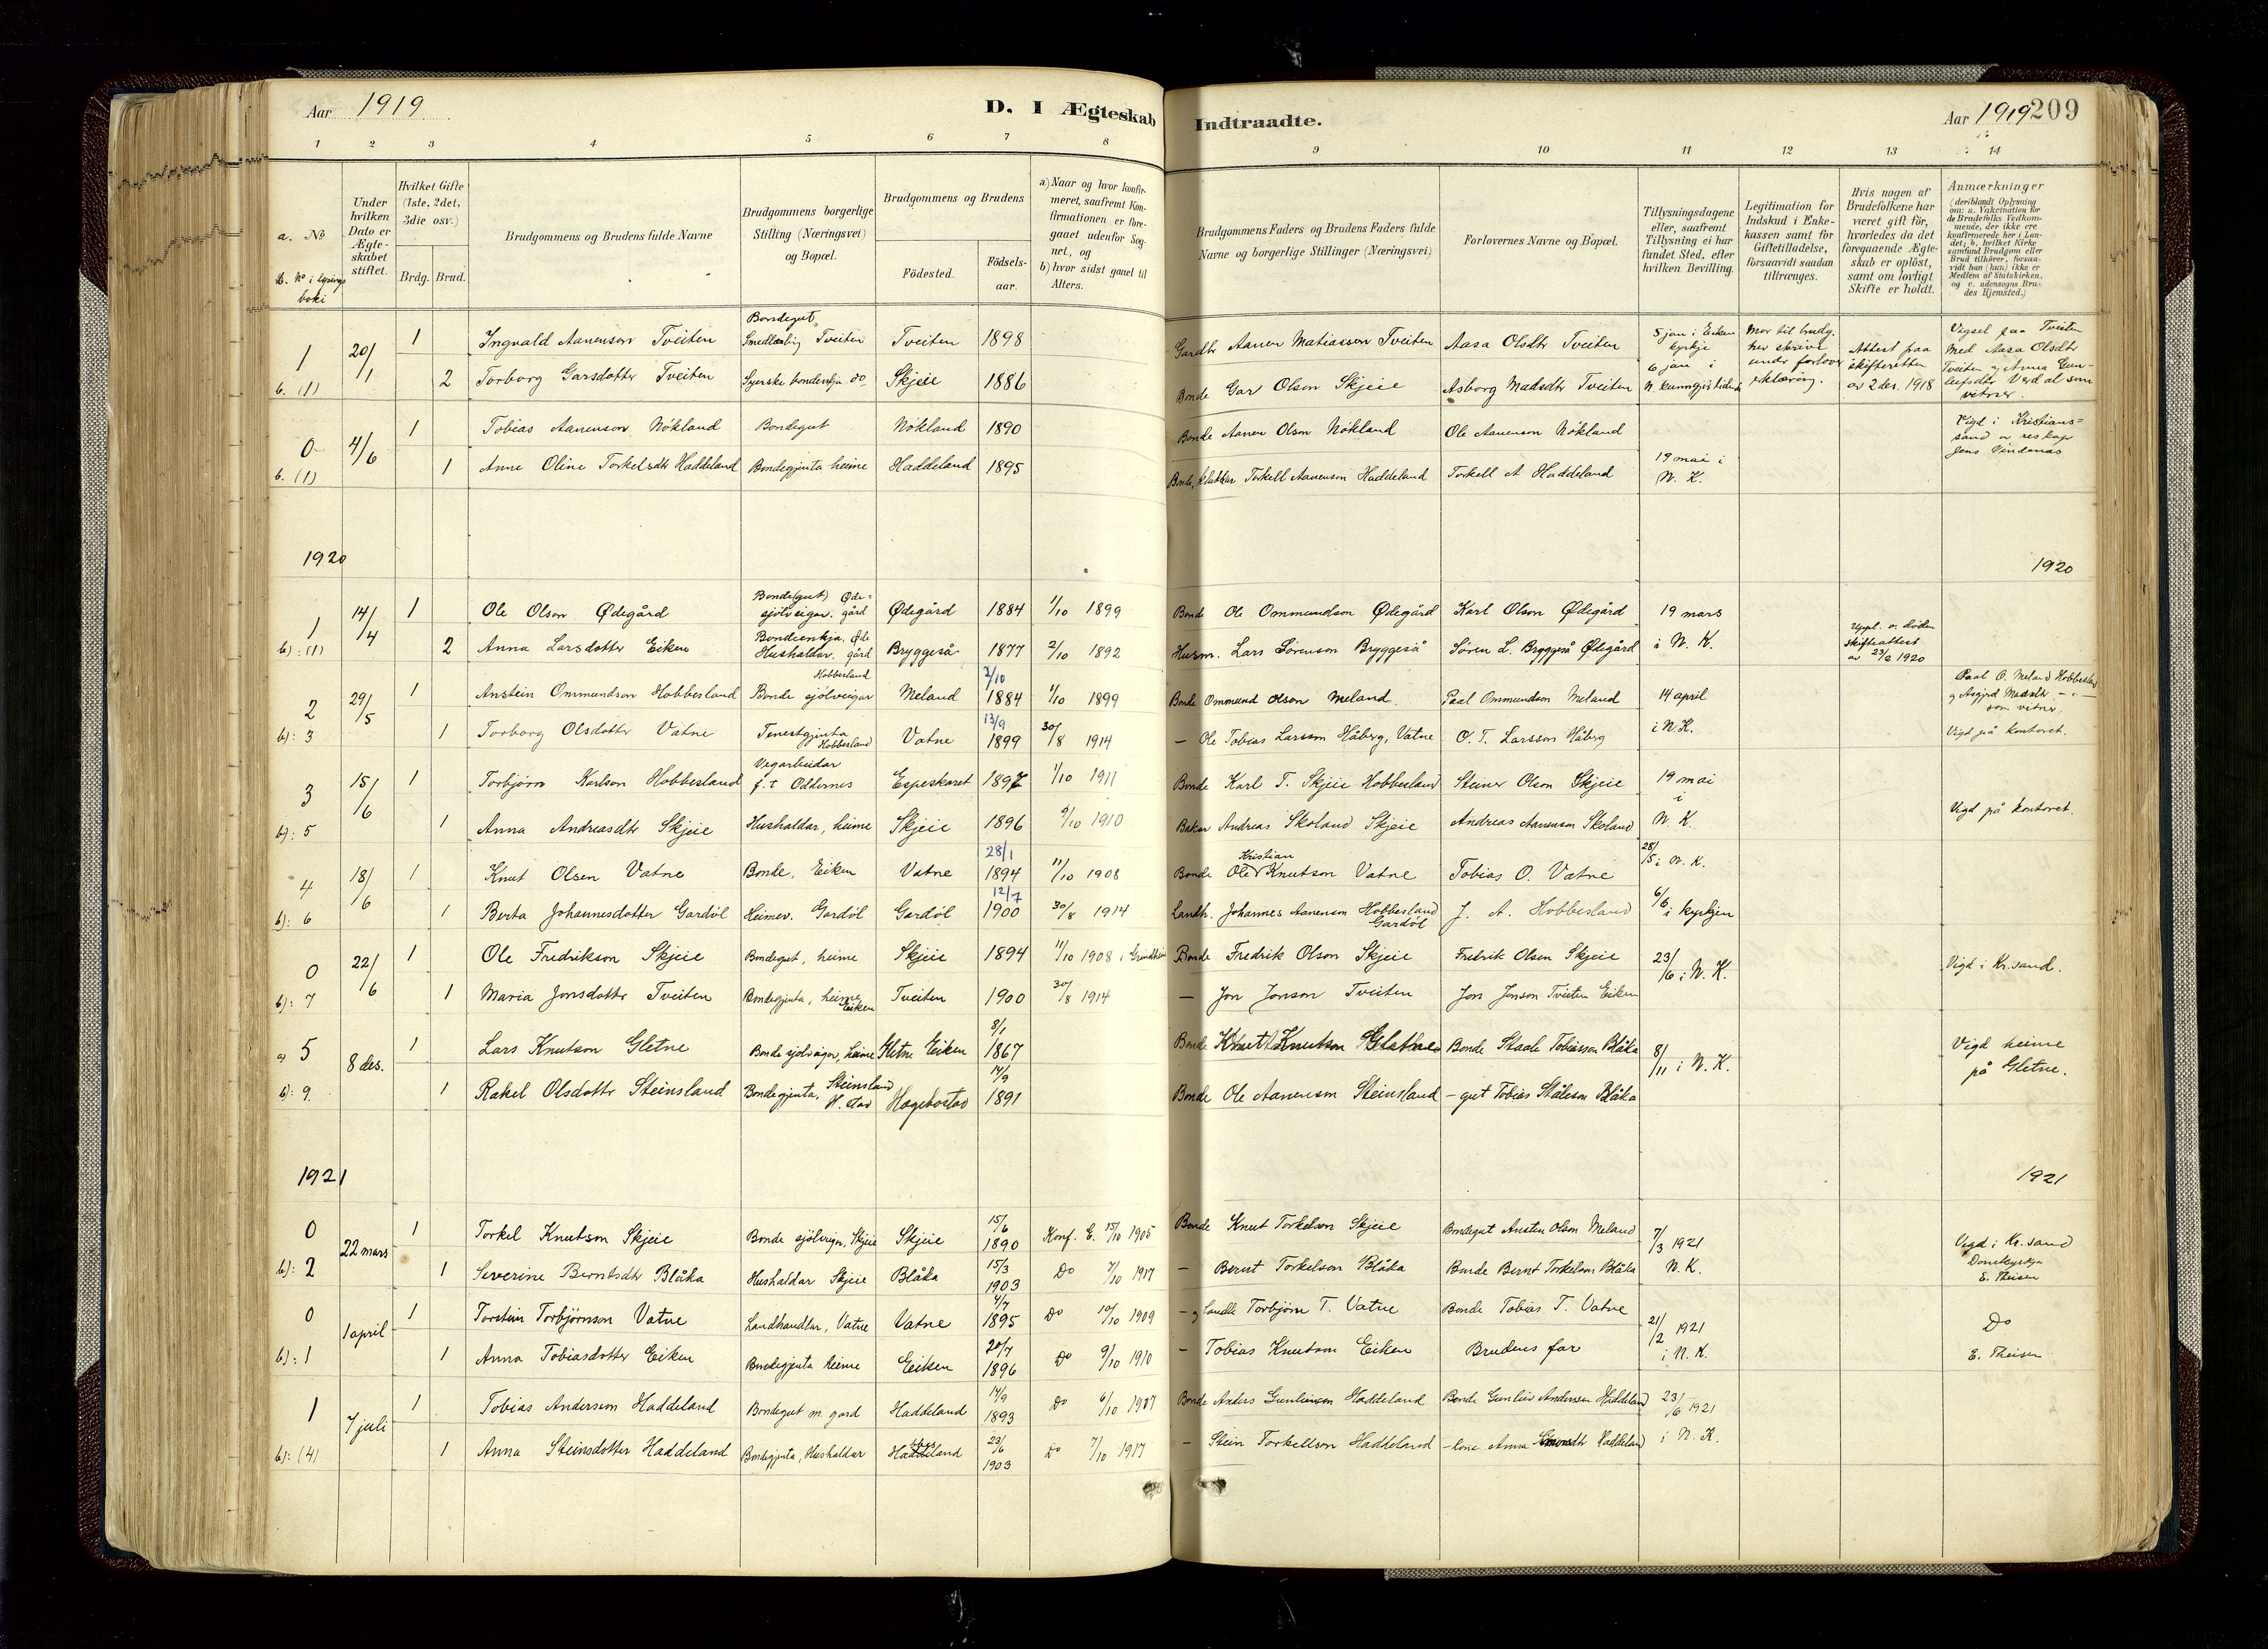 Aar 1919
D. I Ægteskab
Indtraadte.
Aar 1919 209
1 2 3 4 5 6 7 8
9 10 11 12 13 14
a. No
b. No i lysings
boki
Under
hvilken
Dato er
Ægte-
skabet
stiftet.
Hvilket Gifte
(1ste, 2det,
3die osv.)
Brdg. Brud.
Brudgommens og Brudens fulde Navne
Brudgommens borgerlige
Stilling (Næringsvei)
og Bopæl.
Brudgommens og Brudens
Födested.
Födsels-
aar.
a) Naar og hvor konfir-
meret, saafremt Kon-
firmationen er fore-
gaaet udenfor Sog-
net, og
b) hvor sidst gaaet til
Alters.
Brudgommens Faders og Brudens Faders fulde
Navne og borgerlige Stillinger (Næringsvei)
Forlovernes Navne og Bopæl.
Tillysningsdagene
eller, saafremt
Tillysning ei har
fundet Sted, efter
hvilken Bevilling.
Legitimation for
Indskud i Enke-
kassen samt for
Giftetilladelse,
forsaavidt saadan
tiltrænges.
Hvis nogen af
Brudefolkene har
været gift för,
hvorledes da det
foregaaende Ægte-
skab er oplöst,
samt om lovligt
Skifte er holdt.
Anmærkninger
(deriblandt Oplysning
om: a. Vakcination for
de Brudefolks Vedkom-
mende, der ikke ere
konfirmerede her i Lan-
det; b. hvilket Kirke
samfund Brudgom eller
Brud tilhörer, forsaa-
vidt han (hun) ikke er
Medlem af Statskirken,
og c. udensogns Bru-
des Hjemsted.)
1
b. (1)
20/1
1 Ingvald Aanenson Tveiten
Bondegut
Smedlærling Tveiten
Tveiten 1898
Gardbr Aanen Matiasson Tveiten
Aasa Olsdtr Tveiten
5 jan i Eiken
kyrkje
6 jan i
N. kunngjis tidende
Mor til brudg.
hev skrive
under forlover
erklæring.
Attest paa
skifteretten
av 2 des. 1918
Vigsel paa Tveiten
med Aasa Olsdtr
Tveiten og Anna Gun-
leifsdtr Verdal som
vitner.
2 Torborg Garsdotter Tveiten
Syerske bondenkja do
Skjeie 1886
Bonde Gar Olson Skjeie
Asborg Madsdtr Tveiten
0
b. (1)
4/6
1 Tobias Aanenson Nökland
Bondegut
Nökland 1890
Bonde Aanen Olson Nökland
Ole Aanenson Nökland
Vigd i Kristians=
sand av res kap
Jens Vindenas
1 Anne Oline Torkelsdtr Haddeland
Bondegjenta heime
Haddeland 1895
Bonde, klokkar Torkell Aanenson Haddeland
Torkell A Haddeland
19 mai i
N. K.
1920
1920
1
b): (1)
14/4
1 Ole Olson Ødegård
Bonde(gut) Øde-
sjölveigar. gård
Ødegård 1884 1/10 1899
Bonde Ole Ommundson Ødegård
Karl Olson Ødegård
19 mars
i N. K.
2 Anna Larsdotter Eiken
Bondeenkja, Øde
Hushaldar. gård
Bryggeså 1877 2/10 1892
Husm. Lars Sörenson Bryggeså
Sören L. Bryggeså Ødegård
Uppl. v. döden
skifteattest
av 23/2 1920
2
b): 3
29/5
1 Anstein Ommundson Hobbesland
Hobbesland
Bonde sjölveigar
Meland 3/10 1884 1/10 1899
Bonde Ommund Olson Meland
Paal Ommundson Meland
14 april
i N. K.
Paal O. Meland Hobbesland
og Asgjerd Madsdtr - " -
som vitner.
Vigd på kontoret.
1 Torborg Olsdotter Vatne
Tenestgjenta
Hobbesland
Vatne 13/9 1899 30/8 1914
- Ole Tobias Larsson Håberg, Vatne
O. T. Larsson Håberg
3
b): 5
15/6
1 Torbjörn Karlson Hobbesland
Vegarbeidar
f. t Oddernes
Espeskaret 1897 1/10 1911
Bonde Karl T. Skjeie Hobbesland
Steiner Olson Skjeie
19 mai
i
N. K.
Vigd på kontoret.
1 Anna Andreasdtr Skjeie
Hushaldar, heime
Skjeie 1896 9/10 1910
Bakar Andreas Skoland Skjeie
Andreas Aanenson Skoland
4
b): 6
18/6
1 Knut Olsen Vatne
Bonde, Eiken
Vatne 28/1 1894 11/10 1908
Kristian
Bonde Ole Knutson Vatne
Tobias O. Vatne
28/5 i N. K.
1 Berta Johannesdotter Gardöl
Heimev. Gardöl
Gardöl 12/7 1900 30/8 1914
Landh. Johannes Aanenson Hobbesland
Gardöl
J. A. Hobbesland
6/6 i kyrkjen
0
b): 7
22/6
1 Ole Fredrikson Skjeie
Bondegut, heime
Skjeie 1894 11/10 1908 i Grindheim
Bonde Fredrik Olson Skjeie
Fredrik Olsen Skjeie
23/6 i N. K.
Vigd i Kr.sand.
1 Maria Jonsdotter Tveiten
Bondegjenta, heime
Eiken
Tveiten 1900 30/8 1914
- Jon Jonson Tveiten
Jon Jonson Tveiten Eiken
a) 5
b): 9.
8 des.
1 Lars Knutson Gletne
Bonde sjölveigar, heime
Gletne Eiken 8/1 1867
Bonde Knut Knutson Gletne
Bonde Staale Tobiasson Blåka
8/11 i N. K.
Vigd heime
på Gletne.
1 Rakel Olsdotter Steinsland
Bondegjenta, Steinsland
H. stad
Hægebostad 14/9 1891
Bonde Ole Aanenson Steinsland
- gut Tobias Ståleson Blåka
1921
1921
0
b): 2
22 mars
1 Torkel Knutson Skjeie
Bonde sjölveigar, Skjeie
Skjeie 15/6 1890
Konf. E. 15/10 1905
Bonde Knut Torkelson Skjeie
Bondegut Ansten Olson Meland
7/3 1921
N. K.
Vigd i Kr. sand
Domkyrkja
E. Theisen
1 Severine Berntsdtr Blåka
Hushaldar Skjeie
Blåka 15/3 1903
Do 7/10 1917
- Bernt Torkelson Blåka
Bonde Bernt Torkelson Blåka
0
b): 1
1 april
1 Torstein Torbjörnson Vatne
Landhandlar, Vatne
Vatne 4/7 1895
Do 10/10 1909
- og landh Torbjörn T. Vatne
Bonde Tobias T. Vatne
21/2 1921
i N. K.
Do
E. Theisen
1 Anna Tobiasdotter Eiken
Bondegjenta heime
Eeiken 20/7 1896
Do 9/10 1910
- Tobias Knutson Eiken
Brudens far
1
b): (4)
7 juli
1 Tobias Anderson Haddeland
Bondegut m. gard
Haddeland 14/9 1893
Do 6/10 1907
Bonde Anders Gunleivson Haddeland
Bonde Gunleiv Anderson Haddeland
23/6 1921
i N. K.
1 Anna Steinsdotter Haddeland
Bondegjenta, Hushaldar
Haddeland 23/6 1903
Do 7/10 1917
- Stein Torkellson Haddeland
- kone Anna Haddeland